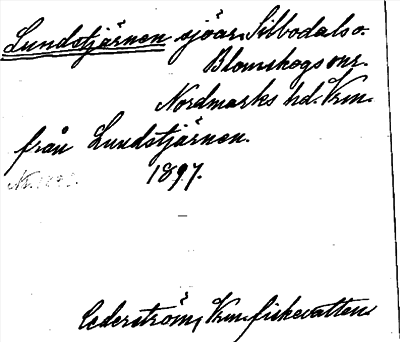 Lundstjärnen sjöar, Silbodals o.
Blomskogs snr.
Nordmarks hd. Vrm.
från Lundstjärnen.
1897.
Cederström, Vrm. fiskevatten